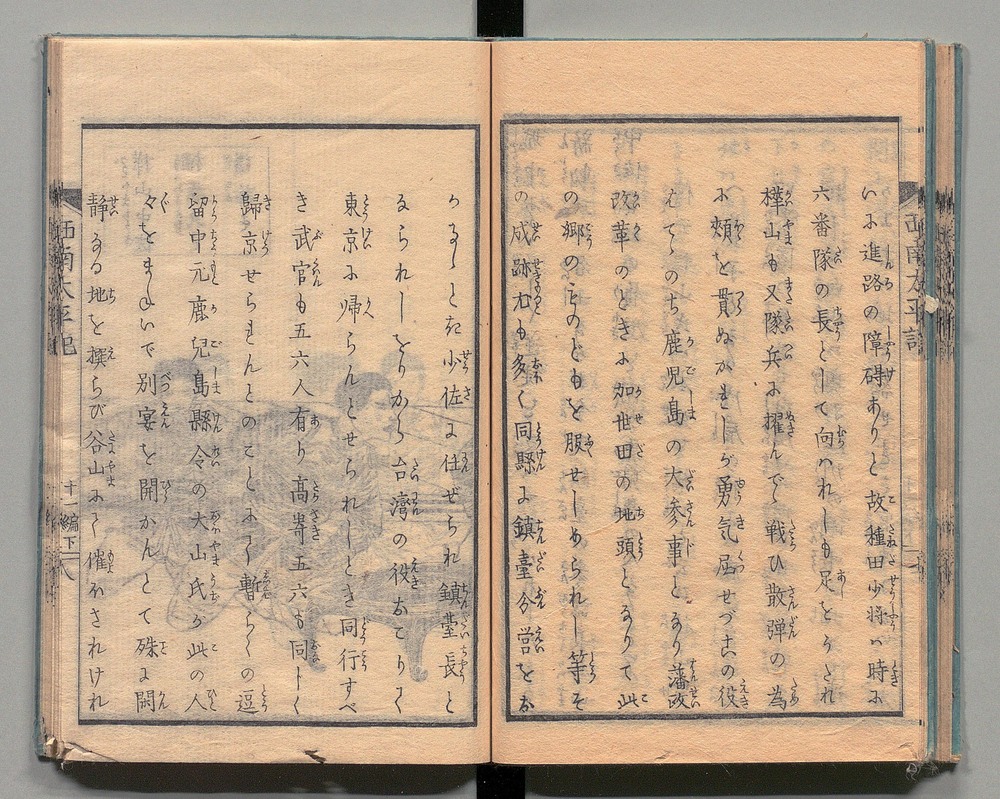 いに進路の障碍ありと故種田少将ハ時に
六番隊の長として向ハれしも足をうされ
樺山も又隊兵に擢んでゝ戦ひ散弾の為
に頬を貫ぬかれしが勇気屈せづ此の役
をハてのち鹿児島の大参事となり藩政
改革のときに加世田の地頭となりて此
の郷のものどもを服せしめられし等そ
の成跡尤も多く同縣に鎮臺分営をお
かるゝとき少佐に任ぜられ鎮臺長と
なられしをりから台湾の役おこりて
東京に帰らんとせられしとき同行すべ
き武官も五六人有り高嵜五六も同じく
歸京せらまんとのことにて暫らくの逗
留中元鹿児島縣令の大山氏が此の人
々をまねいで別宴を開かんとて殊に閑
静なる地を撰らび谷山にて催ふされけれ
西南太平記
十一編下
八